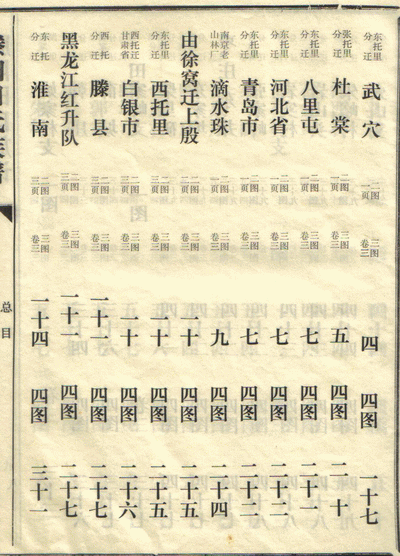 东托里分迁 武穴 二图一页 三图卷三 四 四图 一十七
张托里分迁 杜棠 二图 三图卷三 五 四图 二十
东托里分迁 八里屯 二图 三图卷三 七 四图 二十一
东托分迁 河北省 二图 三图卷三 七 四图 二十二
东托分迁 青岛市 二图 三图卷三 七 四图 二十二
南京老山林厂 滴水珠 二图 三图卷三 九 四图 二十四
由徐窝迁上殷 二图 三图卷三 一十 四图 二十五
东托分迁 西托里 二图 三图卷三 一十 四图 二十五
西托迁甘肃省 白银市 二图 三图卷三 一十 四图 二十六
西托分迁 滕县 二图 三图卷三 一十一 四图 二十七
黑龙江红升队 二图三页 三图卷三 一十一 四图 二十七
东托里分迁 淮南 二图三页 三图卷三 一十四 四图 三十一
总目